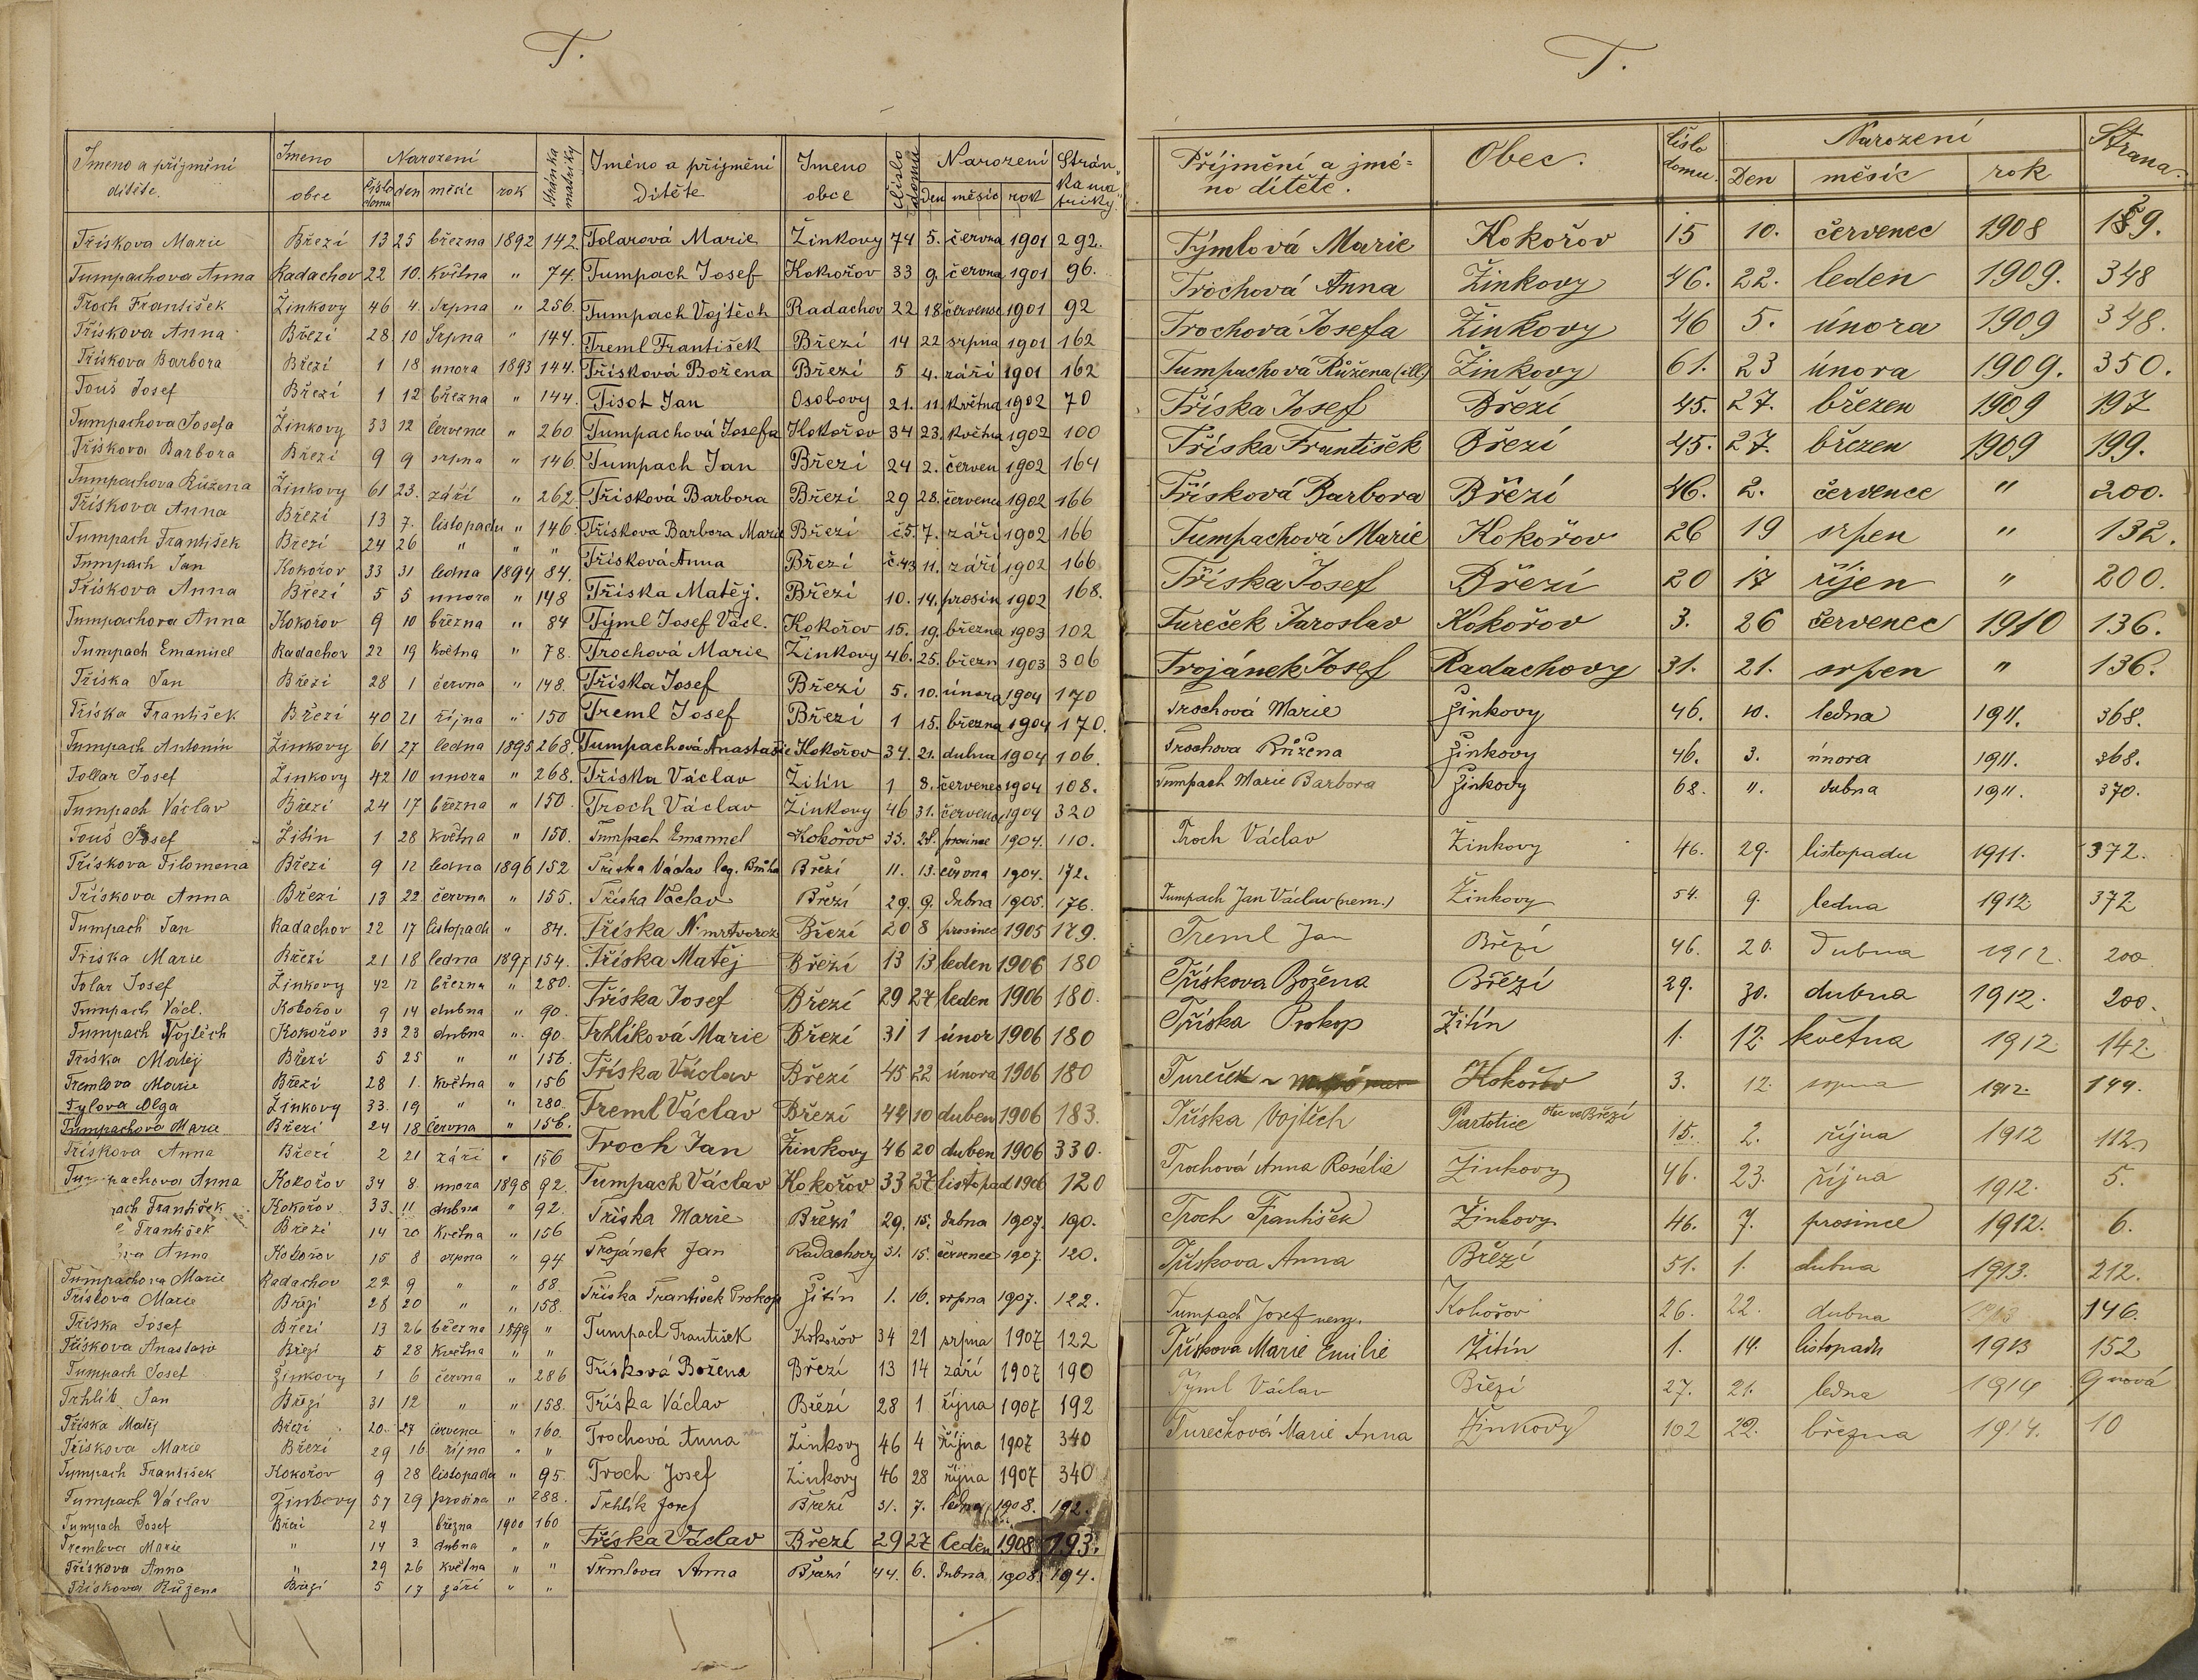 T.
Jmeno a příjmění dítěte. Jmeno obce Narození číslo domu den měsíc rok stránka matriky
Třískova Marie Březí 13 25 března 1892 142
Tumpachova Anna Radachov 22 10. května " 74.
Troch František Žinkovy 46 4. srpna " 256
Třískova Anna Březí 28 10 Srpna " 144.
Třískova Barbora Březí 1 18 unora 1893 144.
Touš Josef Březí 1 12 března " 144.
Tumpachova Josefa Žinkovy 33 12 července " 260
Třískova Barbora Březí 9 9 srpna " 146
Tumpachova Růžena Žinkovy 61 23. září " 262
Třískova Anna Březí 13 7. listopadu " 146
Tumpach František Březí 24 26 " " "
Tumpach Jan Kokořov 33 31 ledna 1894 84.
Třískova Anna Březí 5 5 unora " 148
Tumpachova Anna Kokořov 9 10 března " 84
Tumpach Emanuel Radachov 22 19 května " 78.
Tříska Jan Březí 28 1 června " 148.
Tříska František Březí 40 21 října " 150
Tumpach Antonín Žinkovy 61 27 ledna 1895 268.
Tollar Josef Žinkovy 42 10 unora " 268.
Tumpach Václav Březí 24 17 března " 150
Touš Josef Žitín 1 28 května " 150.
Třískova Filomena Březí 9 12 ledna 1896 152
Třískova Anna Březí 13 22 června " 155.
Tumpach Jan Radachov 22 17 listopadu " 84.
Tříska Marie Březí 21 18 ledna 1897 154.
Tolar Josef Žinkovy 42 12 března " 280.
Tumpach Václ. Kokořov 9 14 dubna " 90.
Tumpach Vojtěch Kokořov 33 23 dubna " 90.
Tříska Matěj Březí 5 25 " " 156.
Tremlova Marie Březí 28 1. května " 156
Tylova Olga Žinkovy 33. 19 " " 280.
Tumpachova Marie Březí 24 18 června " 156.
Třískova Anna Březí 2 21 září " 156
Tumpachova Anna Kokořov 34 8. unora 1898 92.
ach František Kokořov 33 11 dubna " 92.
František Březí 14 20 května " 156
va Anna Kokořov 15 8 srpna " 94
Tumpachova Marie Radachov 22 9 " " 88.
Třískova Marie Březí 28 20 " " 158.
Tříska Josef Březí 13 26 března 1899 "
Třískova Anastasie Březí 5 28 května " "
Tumpach Josef Žinkovy 1 6 června " 286
Trhlík Jan Březí 31 12 " " 158.
Tříska Matěj Březí 20. 27 července " 160.
Třískova Marie Březí 29 16 října " "
Tumpach František Kokořov 9 28 listopadu " 95.
Tumpach Václav Žinkovy 57 29 prosince " 288.
Tumpach Josef Březí 24 března 1900 160
Tremlova Marie " 14 3 dubna " "
Třískova Anna " 29 26 května " "
Třískova Růžena Březí 5 17 září " "
Jméno a příjmění dítěte Jmeno obce číslo domu Narození Den měsíc rok Stránka matriky
Tolarová Marie Žinkovy 74 5. června 1901 292.
Tumpach Josef Kokořov 33 9. června 1901 96.
Tumpach Vojtěch Radachov 22 18 července 1901 92
Treml František Březí 14 22 srpna 1901 162
Třísková Božena Březí 5 4. září 1901 162
Tisot Jan Osobovy 21. 11. května 1902 70
Tumpachová Josefa Kokořov 34 23. května 1902 100
Tumpach Jan Březí 24 2. červen 1902 164
Třísková Barbora Březí 29 28. července 1902 166
Třískova Barbora Marie Březí č.5. 7. září 1902 166
Třísková Anna Březí č.43 11. září 1902 166
Tříska Matěj. Březí 10. 14. prosin 1902 168.
Týml Josef Václ. Kokořov 15. 19. března 1903 102
Trochová Marie Žinkovy 46. 25. březn 1903 306
Tříska Josef Březí 5. 10. února 1904 170
Treml Josef Březí 1 15. března 1904 170.
Tumpachová Anastasie Kokořov 34. 21. dubna 1904 106.
Tříska Václav Žitín 1 8. červenec 1904 108.
Troch Václav Žinkovy 46 31. července 1904 320
Tumpach Emanuel Kokořov 33. 28. prosince 1904. 110.
Tříska Václav leg. Brůha Březí 11. 13. června 1904. 172.
Tříska Václav Březí 29. 9. dubna 1905. 176.
Tříska N. mrtvoroz Březí 20 8 prosinec 1905 179.
Tříska Matěj Březí 13 13 leden 1906 180
Tříska Josef Březí 29 27 leden 1906 180.
Trhlíková Marie Březí 31 1 únor 1906 180
Tříska Václav Březí 45 22 února 1906 180
Treml Václav Březí 44 10 duben 1906 183.
Troch Jan Žinkovy 46 20 duben 1906 330.
Tumpach Václav Kokořov 33 27 listopad 1906 120
Tříska Marie Březí 29. 15. dubna 1907. 190.
Trojánek Jan Radachovy 31. 15. července 1907. 120.
Tříska František Prokop Žitín 1. 16. srpna 1907. 122.
Tumpach František Kokořov 34 21 srpna 1907 122
Třísková Božena Březí 13 14 září 1907 190
Tříska Václav Březí 28 1 října 1907 192
Trochová Anna Žinkovy 46 4 října 1907 340
Troch Josef Žinkovy 46 28 října 1907 340
Trhlík Josef Březí 31. 7. ledna 1908. 192.
Tříska Václav Březí 29 27 leden 1908 193.
Tremlova Anna Březí 44. 6. dubna 1908 194.
T.
Příjmění a jméno dítěte. Obec. Číslo domu. Narození Den měsíc rok Strana.
Týmlová Marie Kokořov 15 10. červenec 1908 129.
Trochová Anna Žinkovy 46. 22. leden 1909. 348
Trochová Josefa Žinkovy 46 5. února 1909 348.
Tumpachová Růžena (ill.) Žinkovy 61. 23 února 1909. 350.
Tříska Josef Březí 45. 27. březen 1909 197
Tříska František Březí 45. 27. březen 1909 199.
Třísková Barbora Březí 46. 2. července " 200.
Tumpachová Marie Kokořov 26 19 srpen " 132.
Tříska Josef Březí 20 17 říjen " 200.
Tureček Jaroslav Kokořov 3. 26 červenec 1910 136.
Trojánek Josef Radachovy 31. 21. srpen " 136.
Trochová Marie Žinkovy 46. 10. ledna 1911. 368.
Trochova Růžena Žinkovy 46. 3. února 1911. 368.
Tumpach Marie Barbora Žinkovy 68. 11. dubna 1911. 370.
Troch Václav Žinkovy 46. 29. listopadu 1911. 372.
Tumpach Jan Václav (nem.) Žinkovy 54. 9. ledna 1912 372
Treml Jan Březí 46. 20. Dubna 1912. 200
Třískova Božena Březí 29. 30. dubna 1912. 200.
Tříska Prokop Žitín 1. 12. května 1912 142.
Tureček Kokořov 3. 12. srpna 1912 144.
Tříska Vojtěch Partotice obec Březí 15. 2. října 1912 112
Trochová Anna Rosalie Žinkovy 46. 23. října 1912. 5.
Troch František Žinkovy 46. 7. prosince 1912. 6.
Třískova Anna Březí 51. 1. dubna 1913. 212.
Tumpach Josef Kokořov 26. 22. dubna 1913 146.
Třískova Marie Emilie Žitín 1. 14. listopadu 1913 152
Týml Václav Březí 27. 21. ledna 1914 9 nová
Turečková Marie Anna Žinkovy 102 22. března 1914. 10